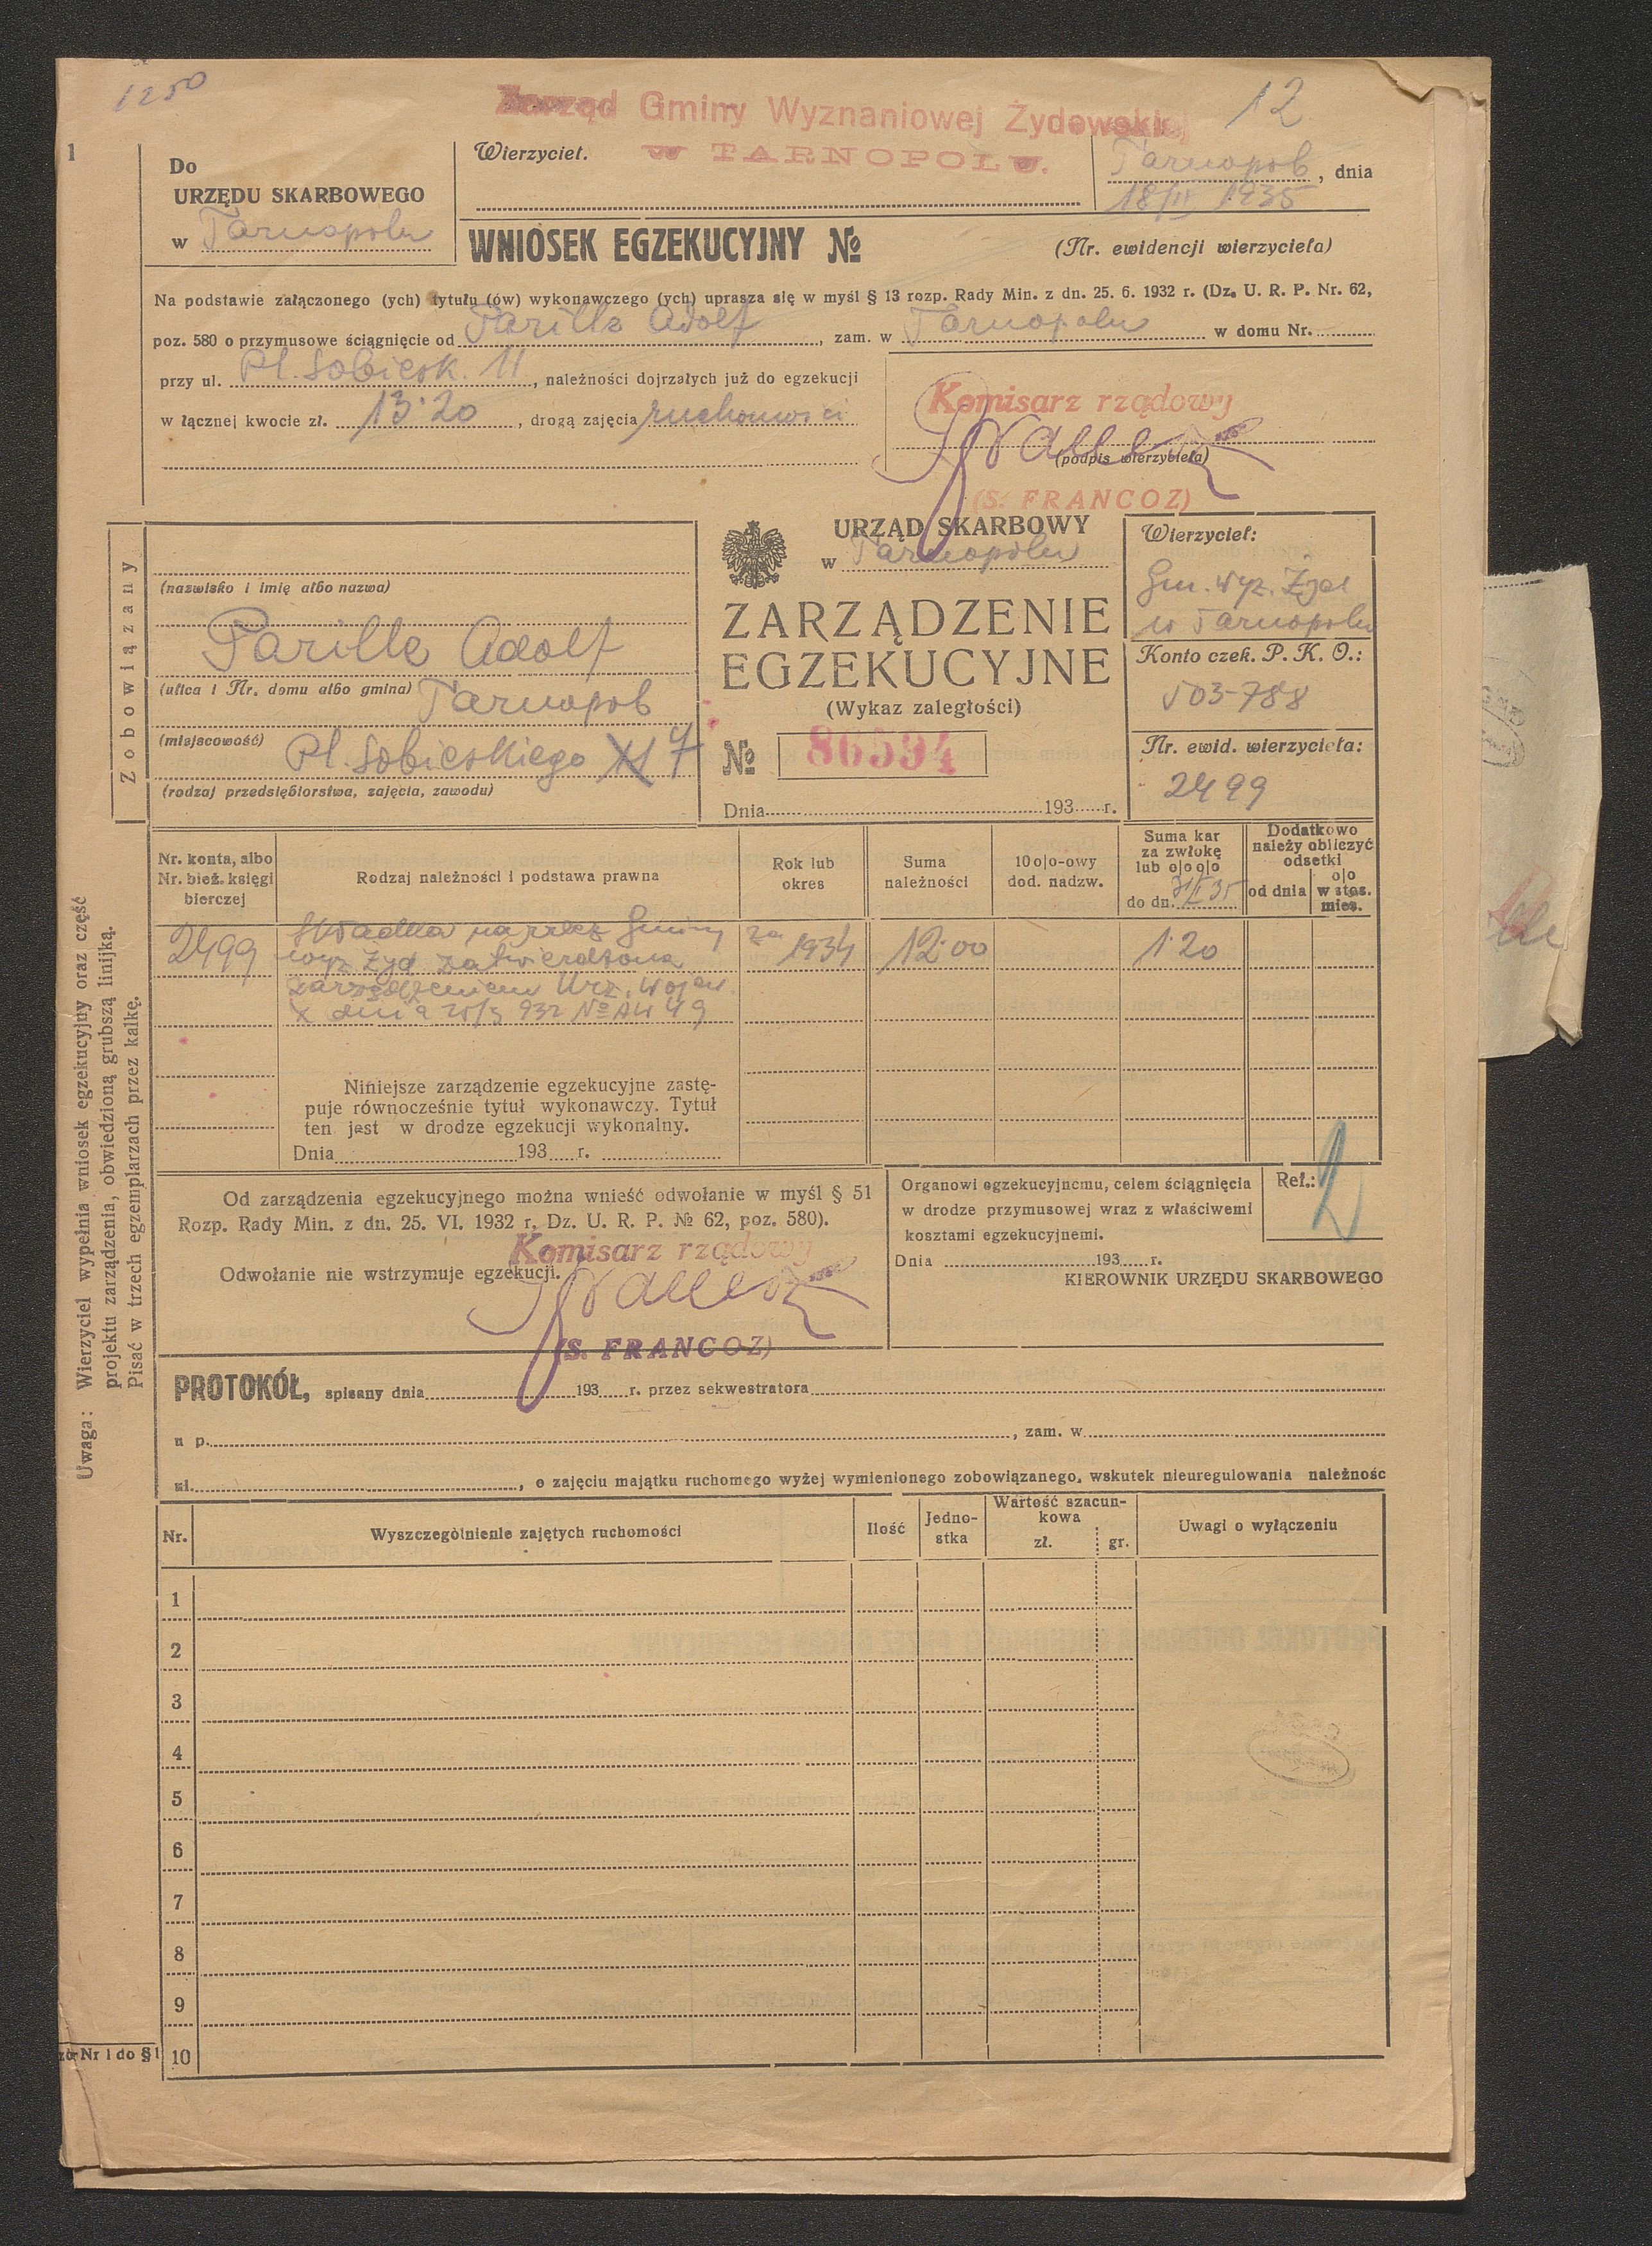 1250
12
Zarząd Gminy Wyznaniowej Żydowskiej
w TARNOPOLU.
1
Do
URZĘDU SKARBOWEGO
w Tarnopolu
Wierzyciel.
Tarnopol, dnia
18/II 1935
WNIOSEK EGZEKUCYJNY №
(Nr. ewidencji wierzyciela)
Na podstawie załączonego (ych) tytułu (ów) wykonawczego (ych) uprasza się w myśl § 13 rozp. Rady Min. z dn. 25. 6. 1932 r. (Dz. U. R. P. Nr. 62,
poz. 580 o przymusowe ściągnięcie od Parille Adolf, zam. w Tarnopolu w domu Nr.
przy ul. Pl. Sobiesk. 11, należności dojrzałych już do egzekucji
w łącznej kwocie zł. 13·20, drogą zajęcia ruchomości
Komisarz rządowy
(podpis wierzyciela)
(S. FRANCOZ)
Zobowiązany
(nazwisko i imię albo nazwa)
Parille Adolf
(ulica i Nr. domu albo gmina) Tarnopol
(miejscowość) Pl. Sobieskiego 11 7
(rodzaj przedsiębiorstwa, zajęcia, zawodu)
URZĄD SKARBOWY
w Tarnopolu
ZARZĄDZENIE
EGZEKUCYJNE
(Wykaz zaległości)
№ 86594
Dnia 193 r.
Wierzyciel:
Gm. wyz. Żyd
w Tarnopolu
Konto czek. P. K. O.:
503-788
Nr. ewid. wierzyciela:
2499
Nr. konta, albo
Nr. bież. księgi
bierczej
Rodzaj należności i podstawa prawna
Rok lub
okres
Suma
należności
10o|o-owy
dod. nadzw.
Suma kar
za zwłokę
lub o|o o|o
do dn. 31/I 35
Dodatkowo
należy obliczyć
odsetki
od dnia
o|o
w stos.
mies.
2499 Składka na rzecz Gminy za 1934 12·00 1·20
wyz. Żyd zatwierdzona
zarządzeniem Urz. Wojew.
z dnia 25/3 932 № AW 49
Niniejsze zarządzenie egzekucyjne zastę-
puje równocześnie tytuł wykonawczy. Tytuł
ten jest w drodze egzekucji wykonalny.
Dnia 193 r.
Od zarządzenia egzekucyjnego można wnieść odwołanie w myśl § 51
Rozp. Rady Min. z dn. 25. VI. 1932 r. Dz. U. R. P. № 62, poz. 580).
Komisarz rządowy
Odwołanie nie wstrzymuje egzekucji.
(S. FRANCOZ)
Organowi egzekucyjnemu, celem ściągnięcia
w drodze przymusowej wraz z właściwemi
kosztami egzekucyjnemi.
Dnia 193 r.
KIEROWNIK URZĘDU SKARBOWEGO
Ref.: 2
PROTOKÓŁ, spisany dnia 193 r. przez sekwestratora
u p. , zam. w
ul. , o zajęciu majątku ruchomego wyżej wymienionego zobowiązanego, wskutek nieuregulowania należnośc
Nr.
Wyszczególnienie zajętych ruchomości
Ilość
Jedno-
stka
Wartość szacun-
kowa
zł.
gr.
Uwagi o wyłączeniu
1
2
3
4
5
6
7
8
9
10
Uwaga: Wierzyciel wypełnia wniosek egzekucyjny oraz część
projektu zarządzenia, obwiedzioną grubszą linijką.
Pisać w trzech egzemplarzach przez kalkę.
zór Nr 1 do § 1